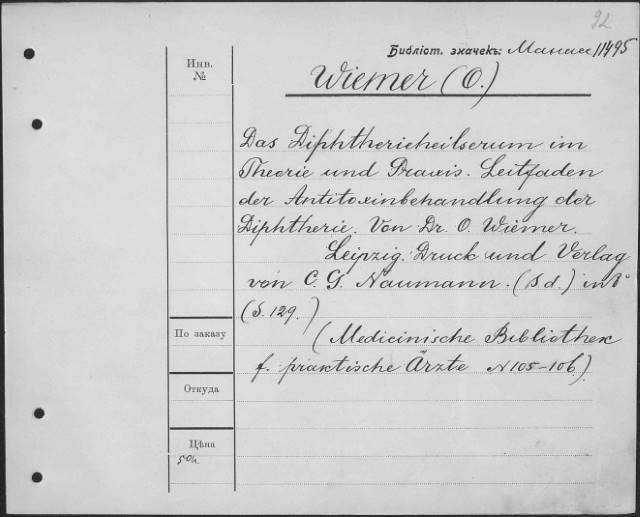 92
Библіот. значекъ: Манасе 11495
Инв.
№
Wiemer (O.)
Das Diphtherieheilserum im
Theorie und Praxis. Leitfaden
der Antitoxinbehandlung der
Diphtherie. Von Dr. O. Wiemer.
Leipzig. Druck und Verlag
von C. G. Naumann. (S d.) in 8°
(S. 129.)
По заказу
(Medicinische Bibliothek
f. praktische Ärzte N 105-106.)
Откуда
Цѣна